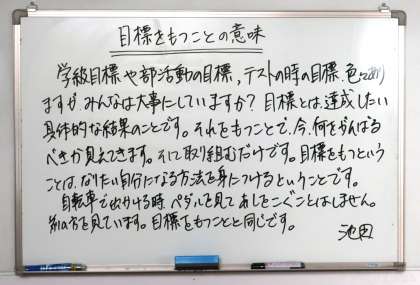 目標をもつことの意味
学級目標や部活動の目標,テストの時の目標.色々あり
ますが、みんなは大事にしていますか?目標とは、達成したい
具体的な結果のことです。それをもつことで、今、何をがんばる
べきか見えてきます。そこに取り組むだけです。目標をもつという
ことは、なりたい自分になる方法を身につけるということです。
自転車で出かける時、ペダルを見てあしをこぐことはしません。
前の方を見ています。目標をもつことと同じです。
池田